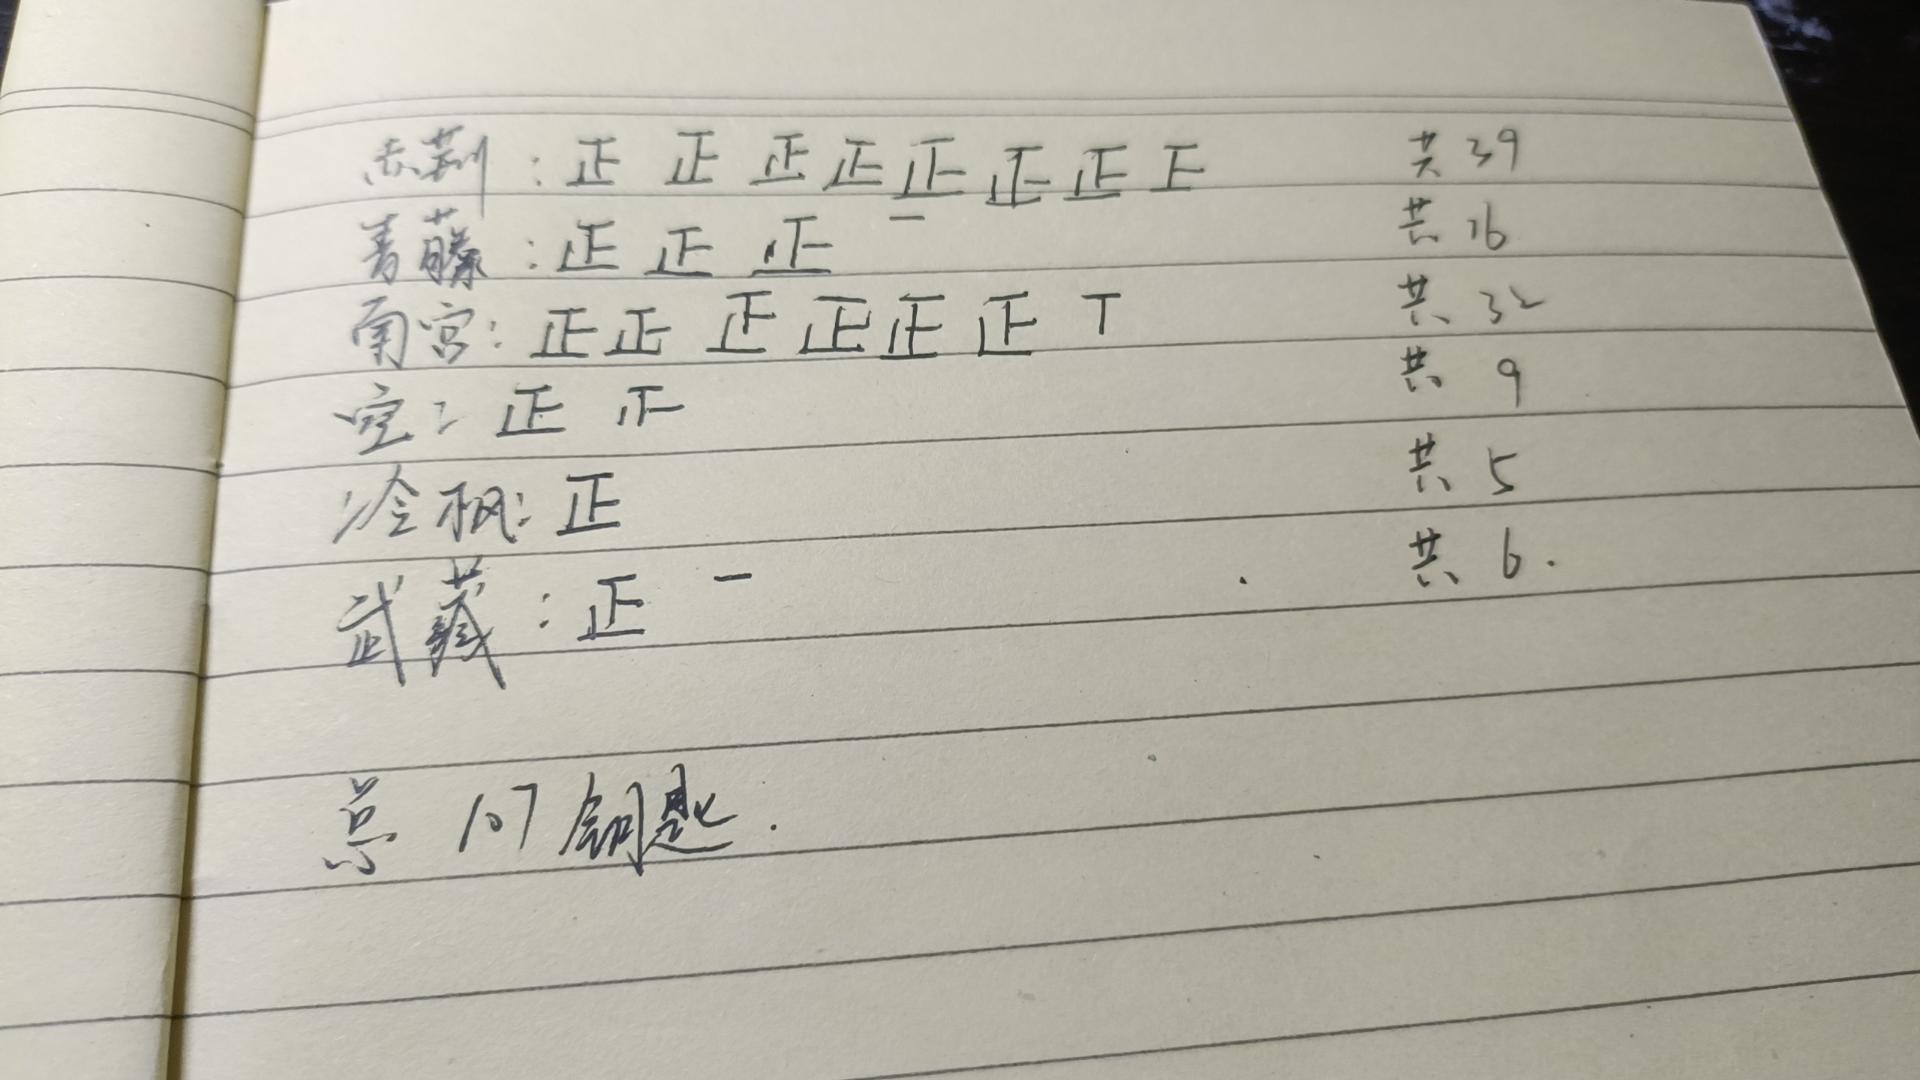 赤荆：正 正 正 正 正 正 正 正 共 39
青藤：正 正 正 一 共 16
南宫：正 正 正 正 正 正 丅 共 32
空：正 正 共 9
冷枫：正 共 5
武藏：正 一 共 6.
总 107 钥匙.